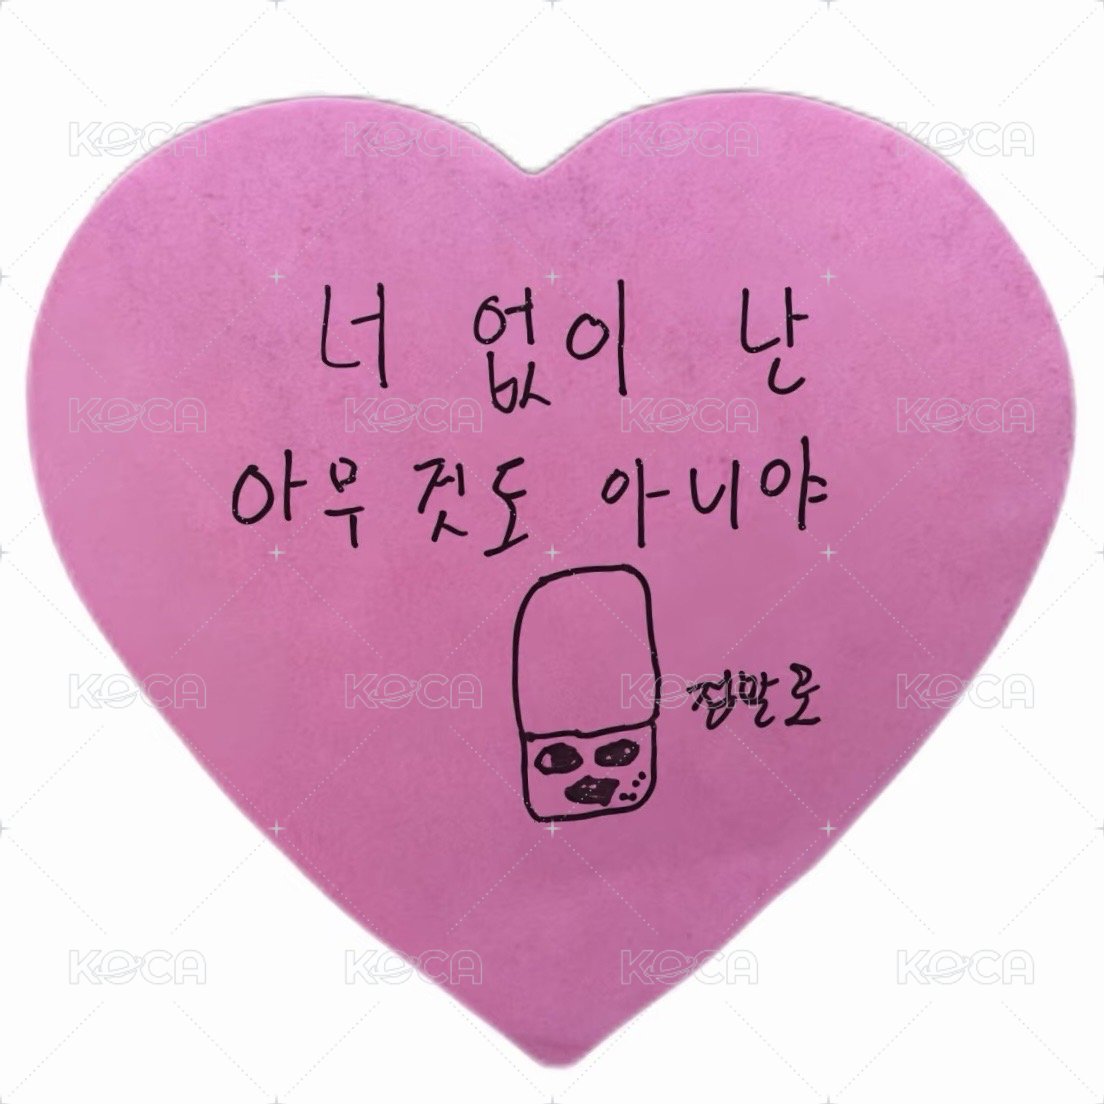 KOCA KOCA KOCA KOCA
너 없이 난
KOCA KOCA KOCA KOCA
아무것도 아니야
KOCA KOCA KOCA KOCA
정말로
KOCA KOCA KOCA KOCA